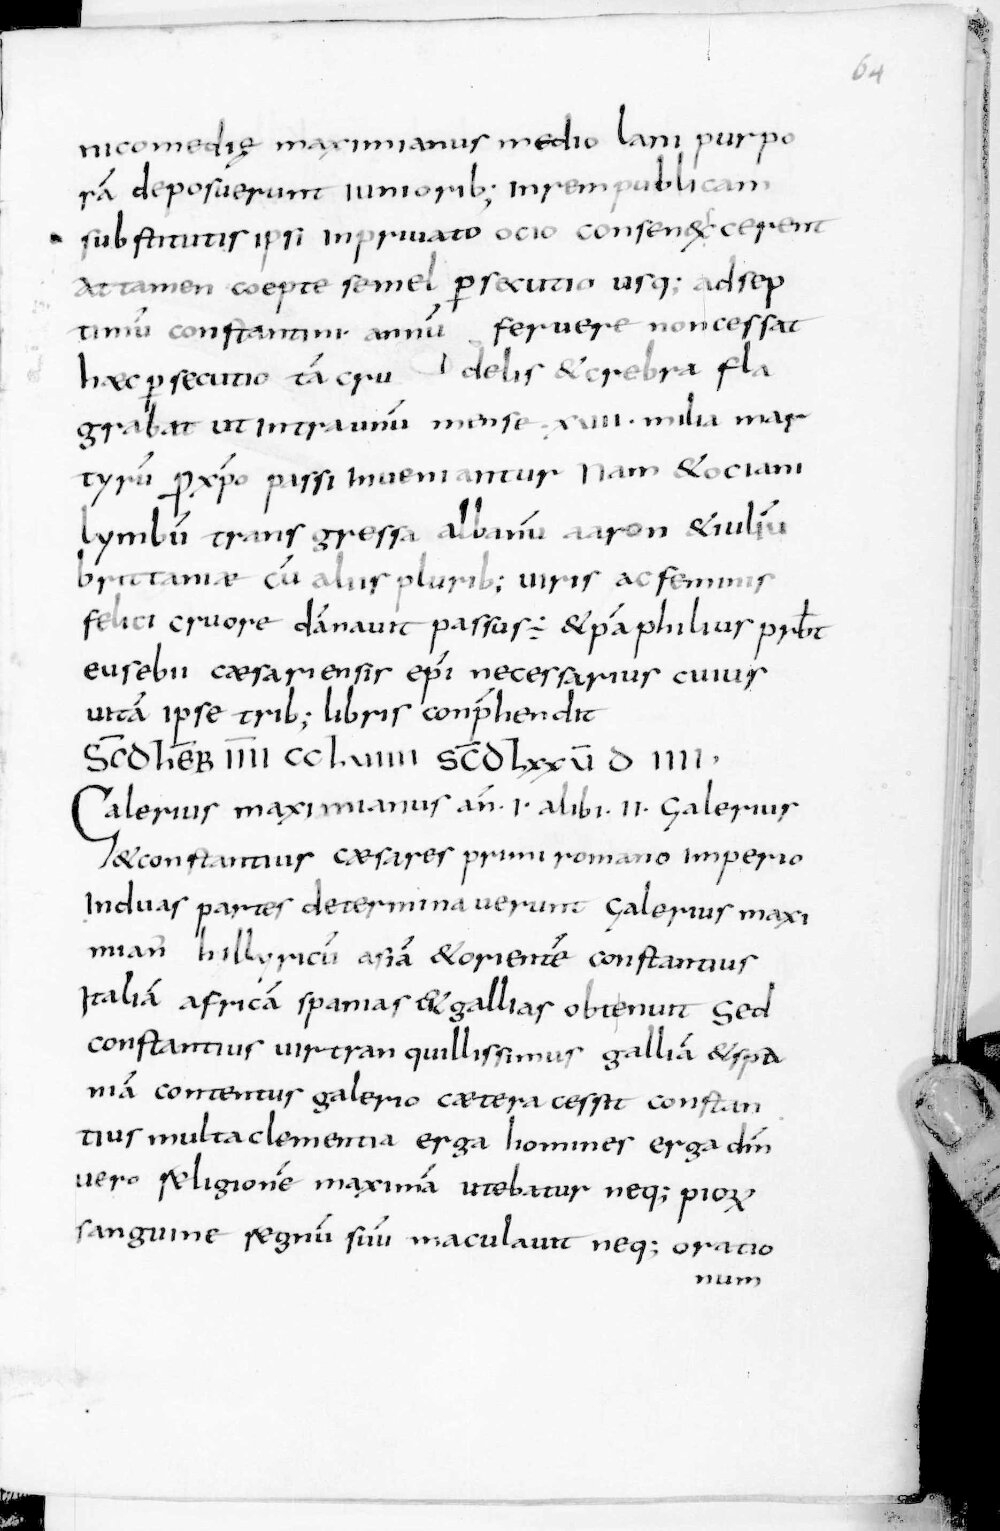 64
nicomedię maximianus medio lani purpo
rā deposuerunt iuniorib; inrempublicam
substitutis ipsi inpriuato ocio consen&cerent
attamen coepte semel p̱secutio usq; adsep
timū constantini annū feruere noncessat
hæc p̱secutio tā cru delis & crebra fla
grabat ut intraunū mense · xuii · milia mar
tyrū p̱ xp̄o passi inueniantur nam & ociani
lymbū trans gressa albanū aaron & iuliū
brittaniæ cū aliis plurib; uiris ac feminis
felici cruore dānauit passus : & pāphilius prb̄t
eusebii cæsariensis ep̄i necessarius cuius
uitā ipse trib; libris conp̄hendit
SC̄D hEB̄ IIII CClxuiiii SC̄D lxxū D IIII ,
Galerius maximianus an̄ · I · alibi · II · Galerius
& constantius cæsares primi romano imperio
induas partes determinauerunt Galerius maxi
mian̄ hillyricū asiā & orientē constantius
Italiā africā spanias & gallias obtenuit Sed
constantius uir tran quillissimus galliā & spa
niā contentus galerio cætera cessit constan
tius multa clementia erga homines erga dm̄
uero religionē maximā utebatur neq; pioꝝ
sanguine regnū suū maculauit neq; oratio
num